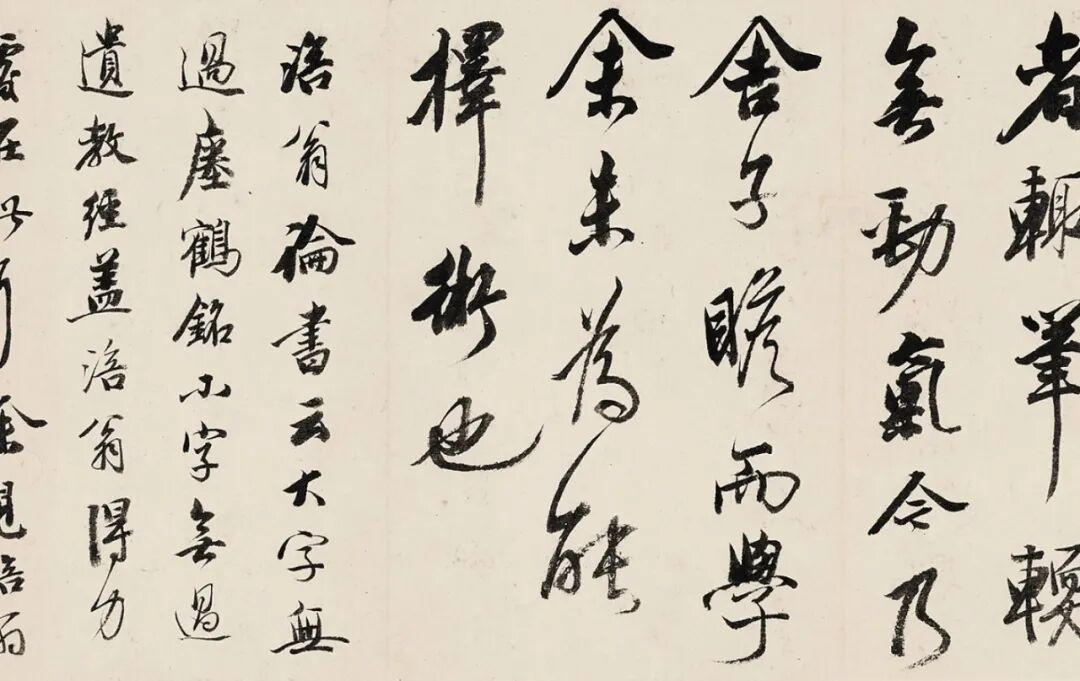 者輙筆輭
無勁氣今乃
舍子瞻而學
余未為能
擇術也
涪翁論書云大字無
過瘞鶴銘小字無過
遺教經盖涪翁得力
處在此余見涪翁